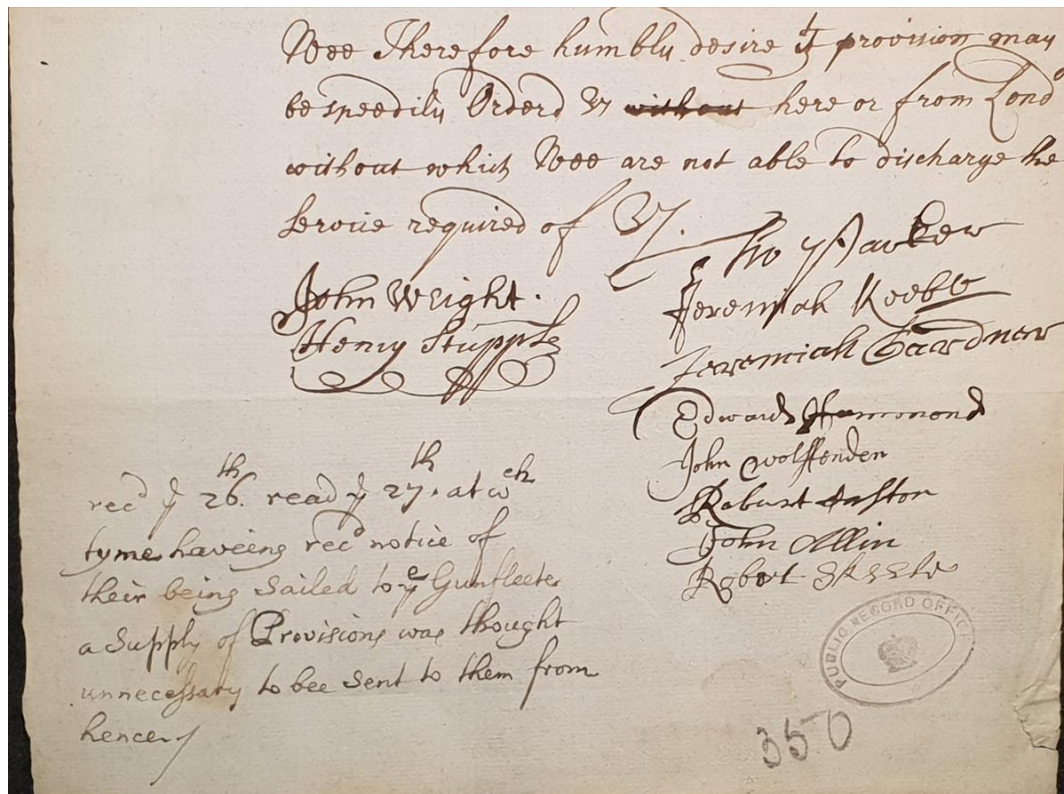 Wee Therefore humbly desire yt provision may
be speedily Orderd Vs without here or from Lond
without which Wee are not able to discharge the
Service required of Vs.
Tho Parker
John Wright.
Jeremiah
Henry Stupple
Jeremiah Gardner
Edward Hammond
John Wolffenden
Roburt
John Allin
Robert
recd ye 26th. read ye 27th. at wch
tyme haveing recd notice of
their being Sailed to ye Gunfleete
a Supply of Provisions was thought
unnecessary to bee Sent to them from
hence
PUBLIC RECORD OFFICE
350